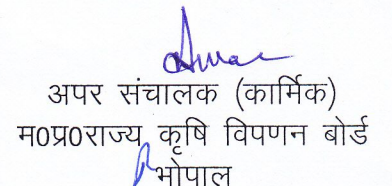 अपर संचालक (कार्मिक)
म0प्र0राज्य कृषि विपणन बोर्ड
भोपाल